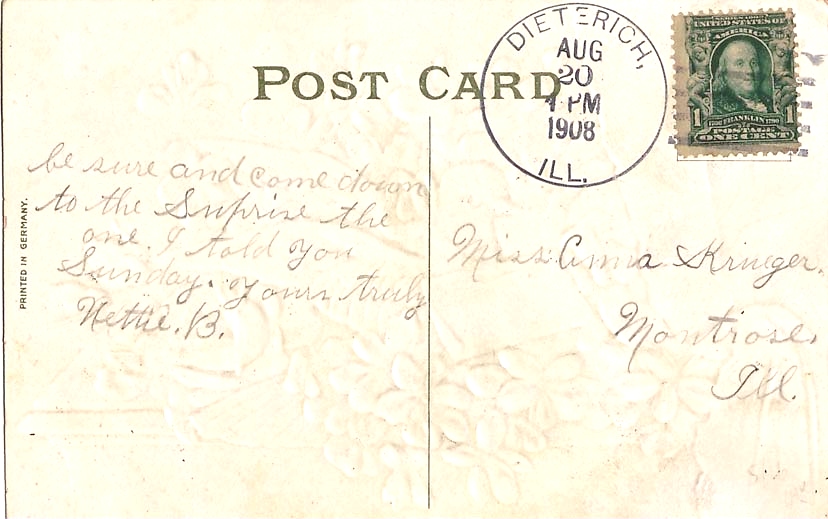 POST CARD
DIETERICH,
AUG
20
1 PM
1908
ILL.
SERIES 1902
UNITED STATES OF
AMERICA
1 1706 FRANKLIN 1790 1
POSTAGE
ONE CENT
PRINTED IN GERMANY.
be sure and come down
to the Suprise the
one. I told you
Sunday. yours truly
Nettie. B.
Miss Anna Krueger.
Montrose,
Ill.